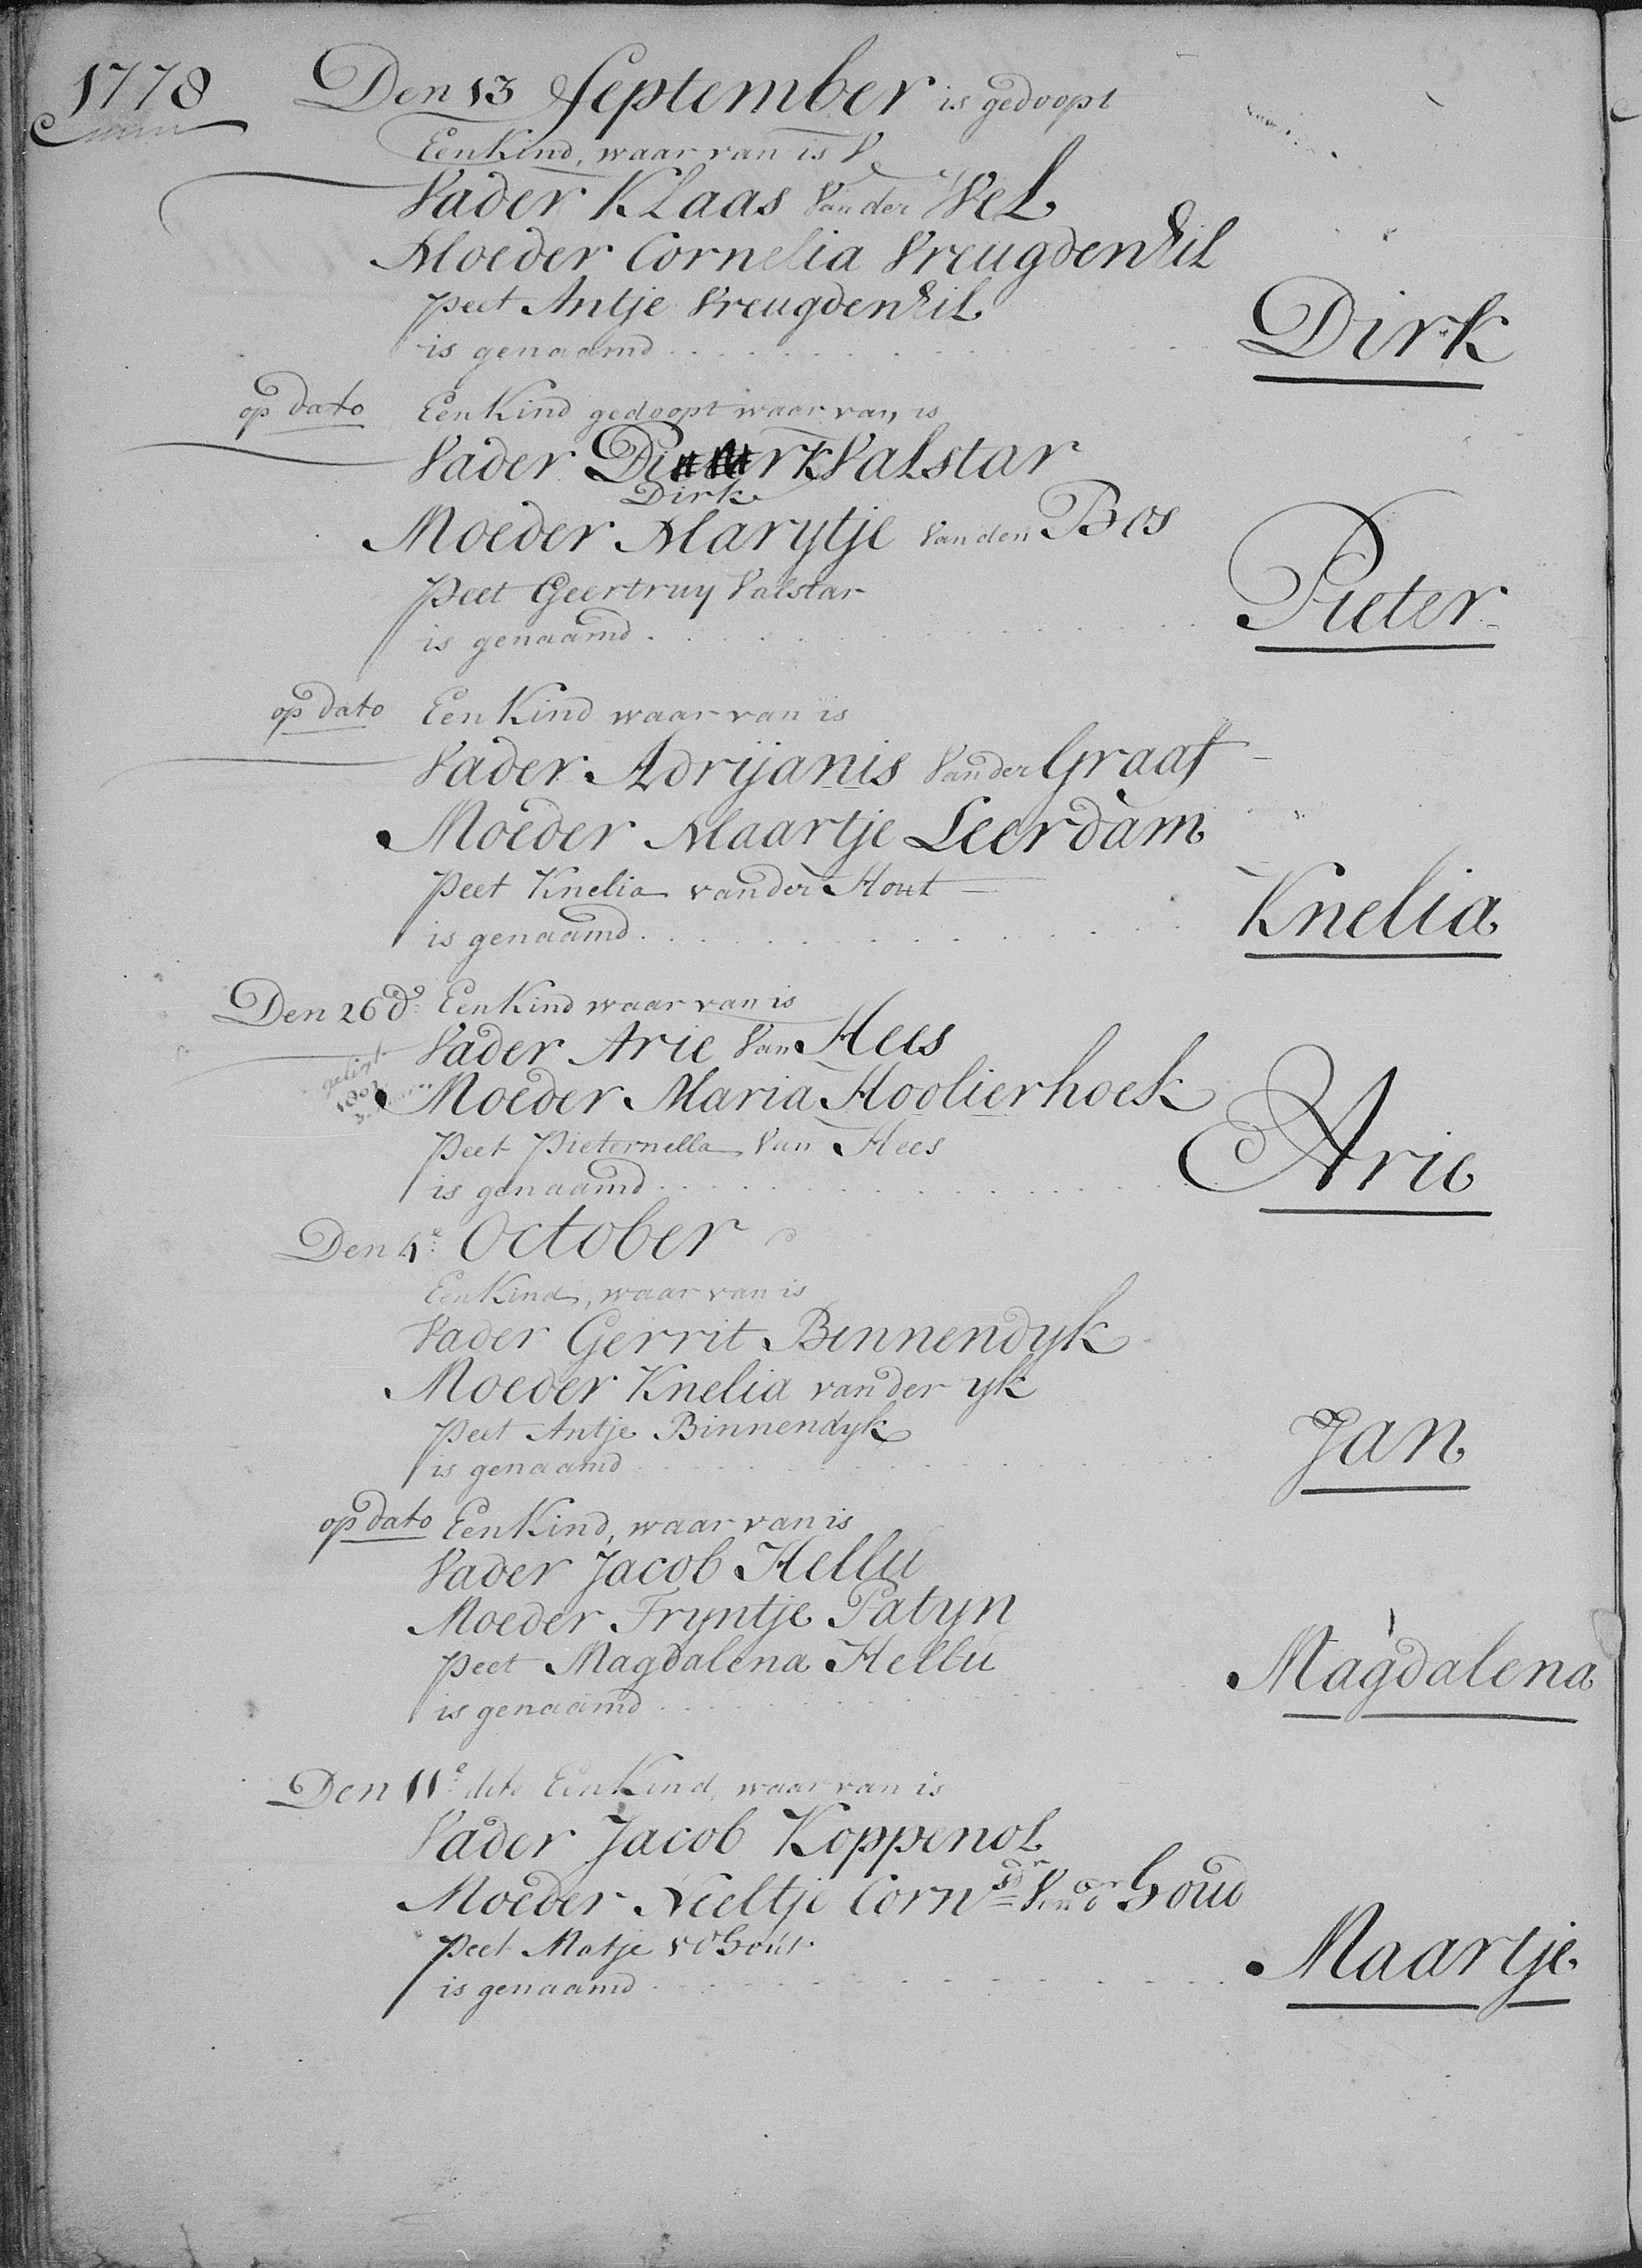 1778
Den 13 September is gedoopt
Een Kind, waar van is
Vader Klaas Van der Wel
Moeder Cornelia Vreugdenhil
Peet Antje Vreugdenhil
is genaamd . . . . . . . . . . Dirk
op dato Een Kind gedoopt waar van is
Vader Valstar
Dirk
Moeder Marytje Van den Bos
Peet Geertruy Valstar
is genaamd . . . . . . . . . . Pieter
op dato Een Kind waar van is
Vader Adrijanis Van der Graaf
Moeder Maartje Leerdam
Peet Knelia van der Hout
is genaamd . . . . . . . . . . Knelia
Den 26 do Een Kind waar van is
Vader Arie Van Hees
Moeder Maria Hoolierhoek
Peet Pieternella Van Hees
is genaamd . . . . . . . . . . Arie
Den 4e October
Een Kind, waar van is
Vader Gerrit Binnendyk
Moeder Knelia van der yk
Peet Antje Binnendyk
is genaamd . . . . . . . . . . Jan
op dato Een Kind, waar van is
Vader Jacob Hellu
Moeder Tryntje Patyn
Peet Magdalena Hellu
is genaamd . . . . . . . . . . Magdalena
Den 11e dito Een Kind, waar van is
Vader Jacob Koppenol
Moeder Neeltje Cornsdr Van dr Goud
Peet Matje vd Gout
is genaamd . . . . . . . . . . Maartje